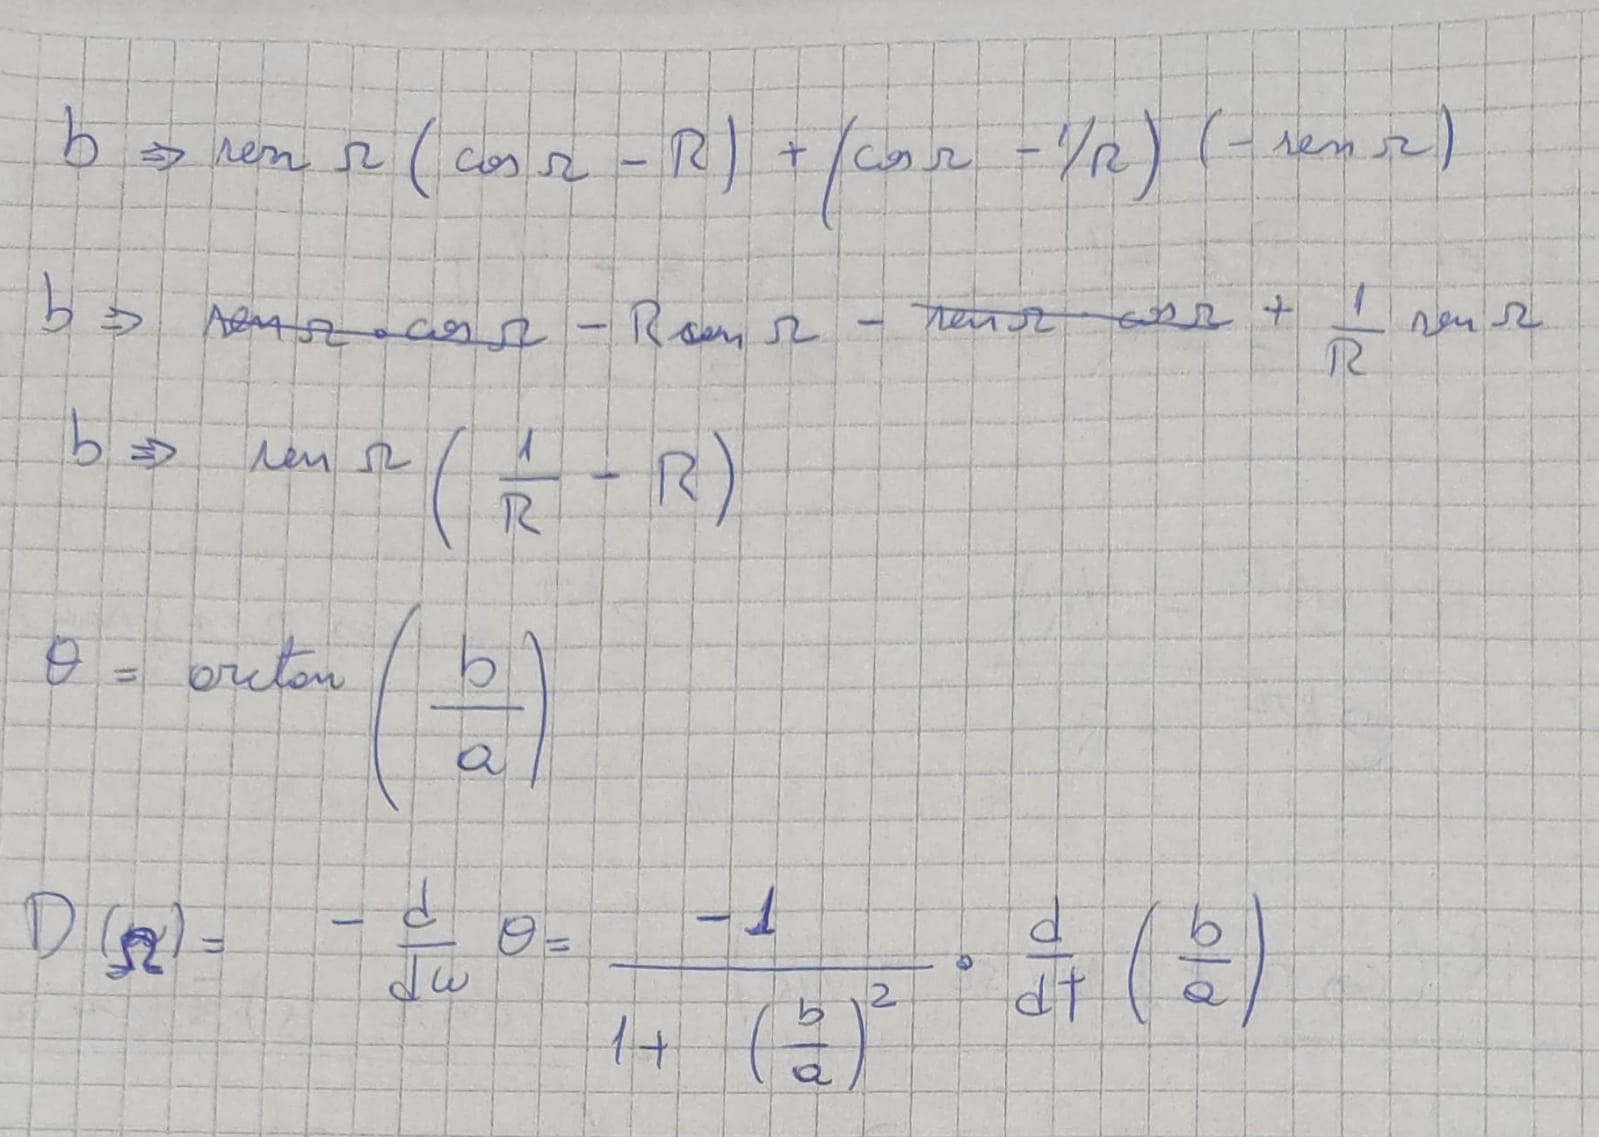 b ⇒ sen Ω (cos Ω - R) + (cos Ω - 1/R) (- sen Ω)
b ⇒ sen Ω · cos Ω - R sen Ω - sen Ω · cos Ω + 1/R sen Ω
b ⇒ sen Ω (1/R - R)
θ = arctan (b/a)
D(Ω) = - d/dω θ = -1/(1 + (b/a)²) · d/dt (b/a)